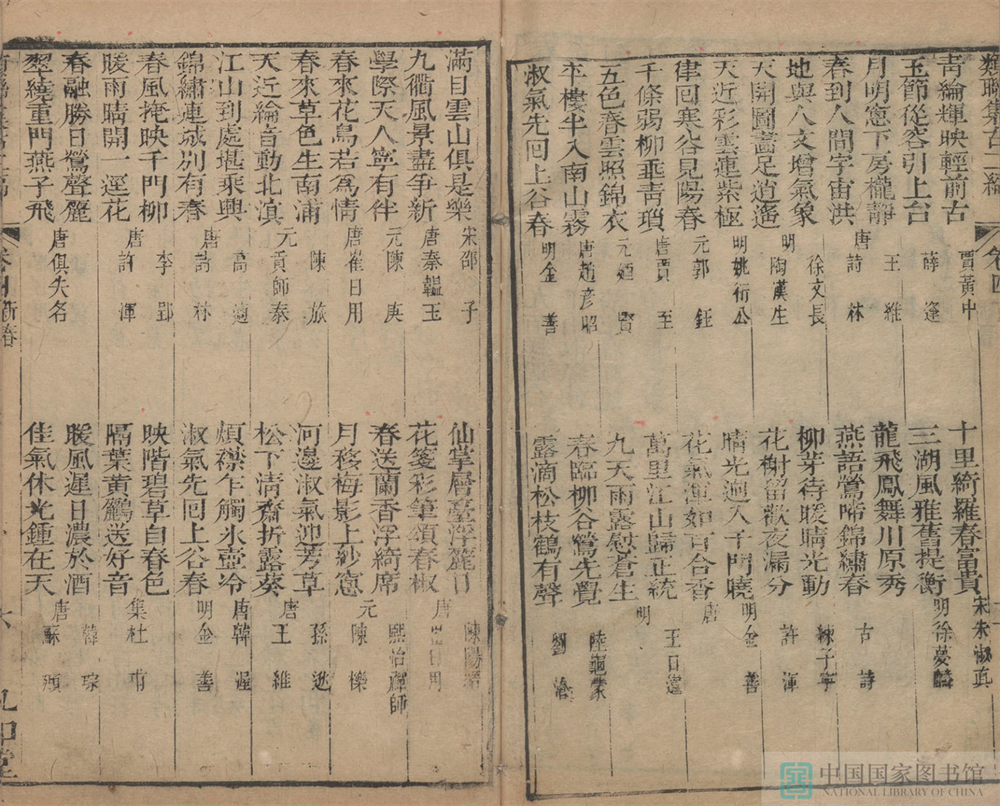 類聯集古二編
青綸輝映輕前古 賈黃中
玉節從容引上台 薛逢
月明窻下房櫳靜 王維
春到人間字宙洪 唐詩林
地與人文增氣象 徐文長
天開圖畵足逍遙 明陶漢生
天近彩雲連紫極 明姚衍公
律回寒谷見陽春 元郭鈺
千條弱柳垂青瑣 唐賈至
五色春雲照錦衣 元廼賢
半樓半入南山霧 唐趙彥昭
淑氣先囘上谷春 明金善
十里綺羅春富貴 宋朱淑真
三湖風雅舊提衡 明徐夢麟
龍飛鳳舞川原秀
燕語鶯啼錦繡春 古詩
柳芽待暖晴光動 練子寧
花榭留歡夜漏分 許渾
晴光迥入千門曉 明金善
花氣渾如百合香 唐
萬里江山歸正統 明王
九天雨露慰蒼生
春臨柳谷鶯先覺 陸龜蒙
露滴松枝鶴有聲 劉滄
滿目雲山俱是樂 宋邵子
九衢風景盡爭新 唐秦韜玉
學際天人寧有伴 元陳庚
春來花鳥若爲情 唐崔日用
春來草色生南浦 陳旅
天近綸音動北溟 元貢師泰
江山到處堪乘興 高適
錦繡連城別有春 唐詩林
春風掩映千門柳 李郢
暖雨晴開一逕花 唐許渾
春融勝日鶯聲麗
翠繞重門燕子飛 唐俱失名
卷四 新春
仙掌層臺浮麗日 陳陽
花箋彩筆頌春椒 唐崔日用
春送蘭香浮綺席 熙怡禪師
月移梅影上紗窻 元陳櫟
河邊淑氣迎芳草 孫逖
松下清齋折露葵 唐王維
煩襟乍觸氷壺冷 唐韓偓
淑氣先囘上谷春 明金善
映階碧草自春色
隔葉黃鸝送好音 集杜甫
暖風遲日濃於酒 韓琮
佳氣休光鍾在天 唐蘇頲
六
中国国家图书馆
NATIONAL LIBRARY OF CHINA